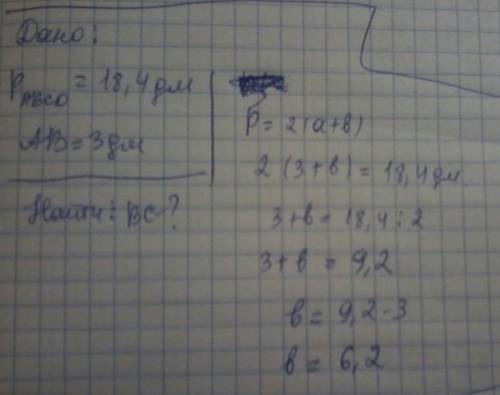 Дано:
P ABCD = 18,4 дм
AB = 3 дм
Найти: BC - ?
P = 2(a+в)
2 (3+в) = 18,4 дм
3+в = 18,4 : 2
3+в = 9,2
в = 9,2 - 3
в = 6,2